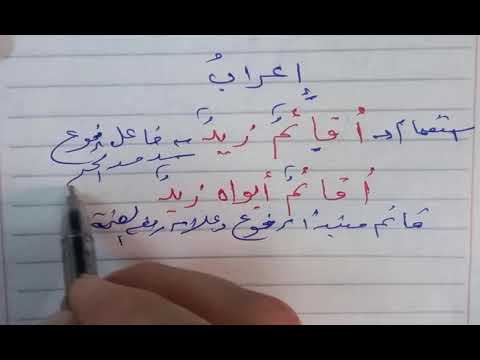 اعرابُ
استفهام أَقَائِمٌ زيدٌ فاعل مرفوع
سد مسد الخبر
أقائمٌ أبواه زيدٌ
قائم مبتدأ مرفوع وعلامة رفعه الضمة